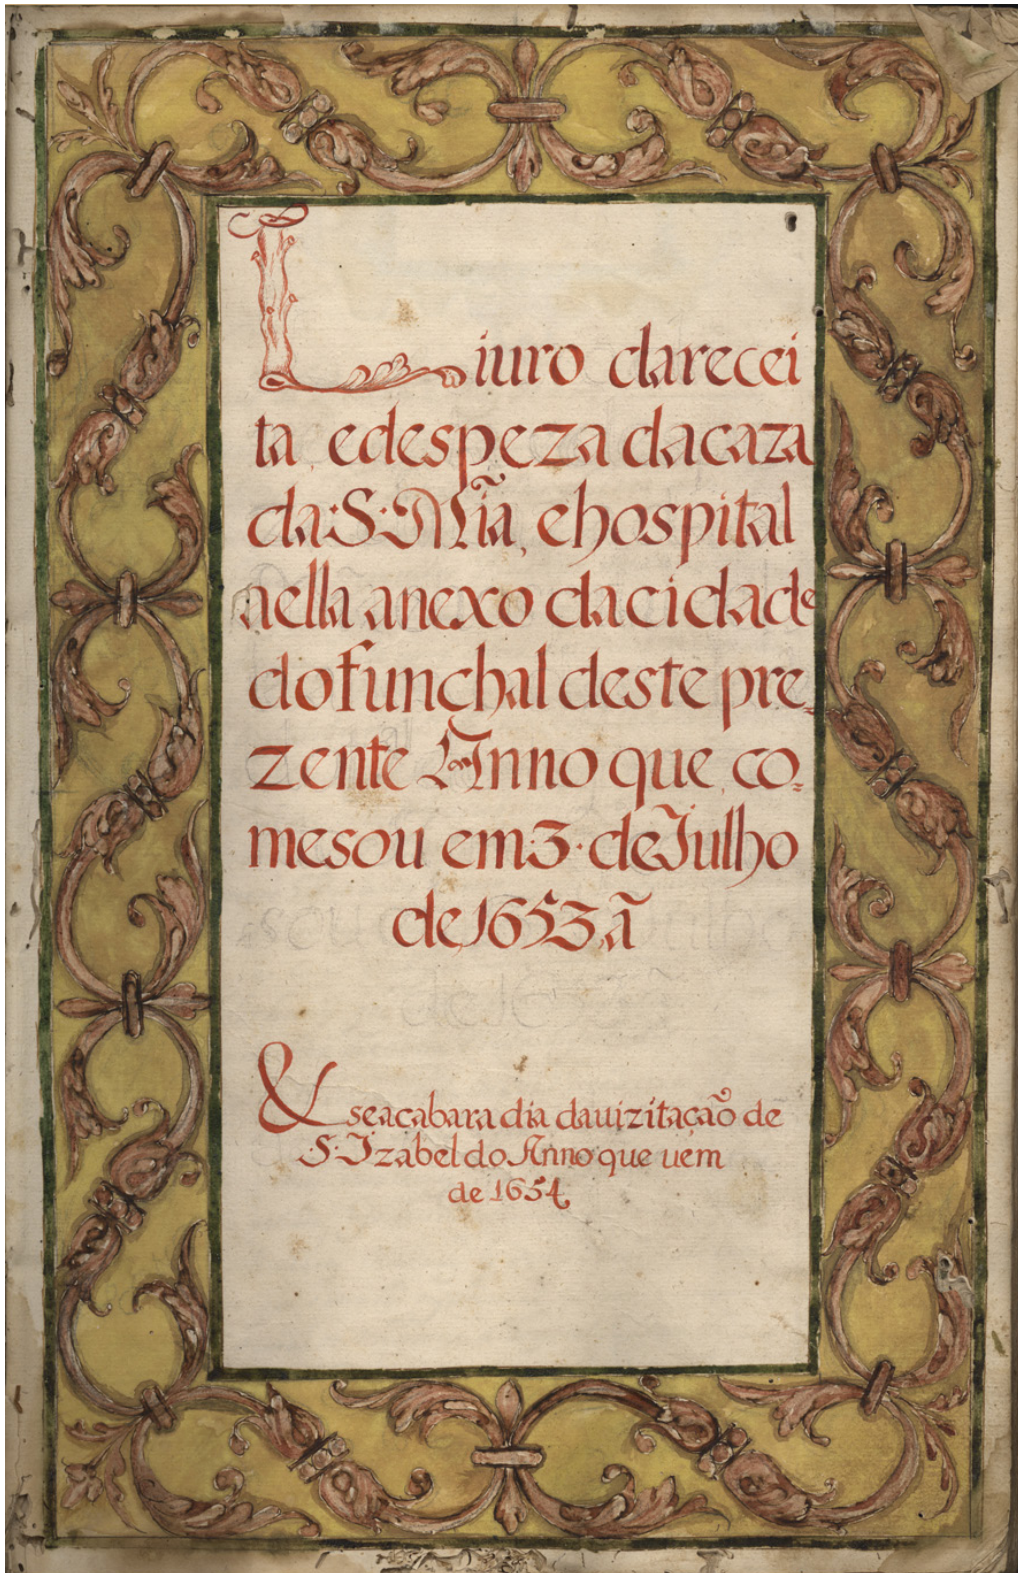 Liuro darecei
ta, edespeza dacaza
da:S:Mĩa, ehospital
nella anexo dacidade
dofunchal deste pre,
zente Anno que, co,
mesou em3·deJulho
de,1653,ã
& seacabara dia dauizitação de
S·Izabel do Anno que uem
de 1654